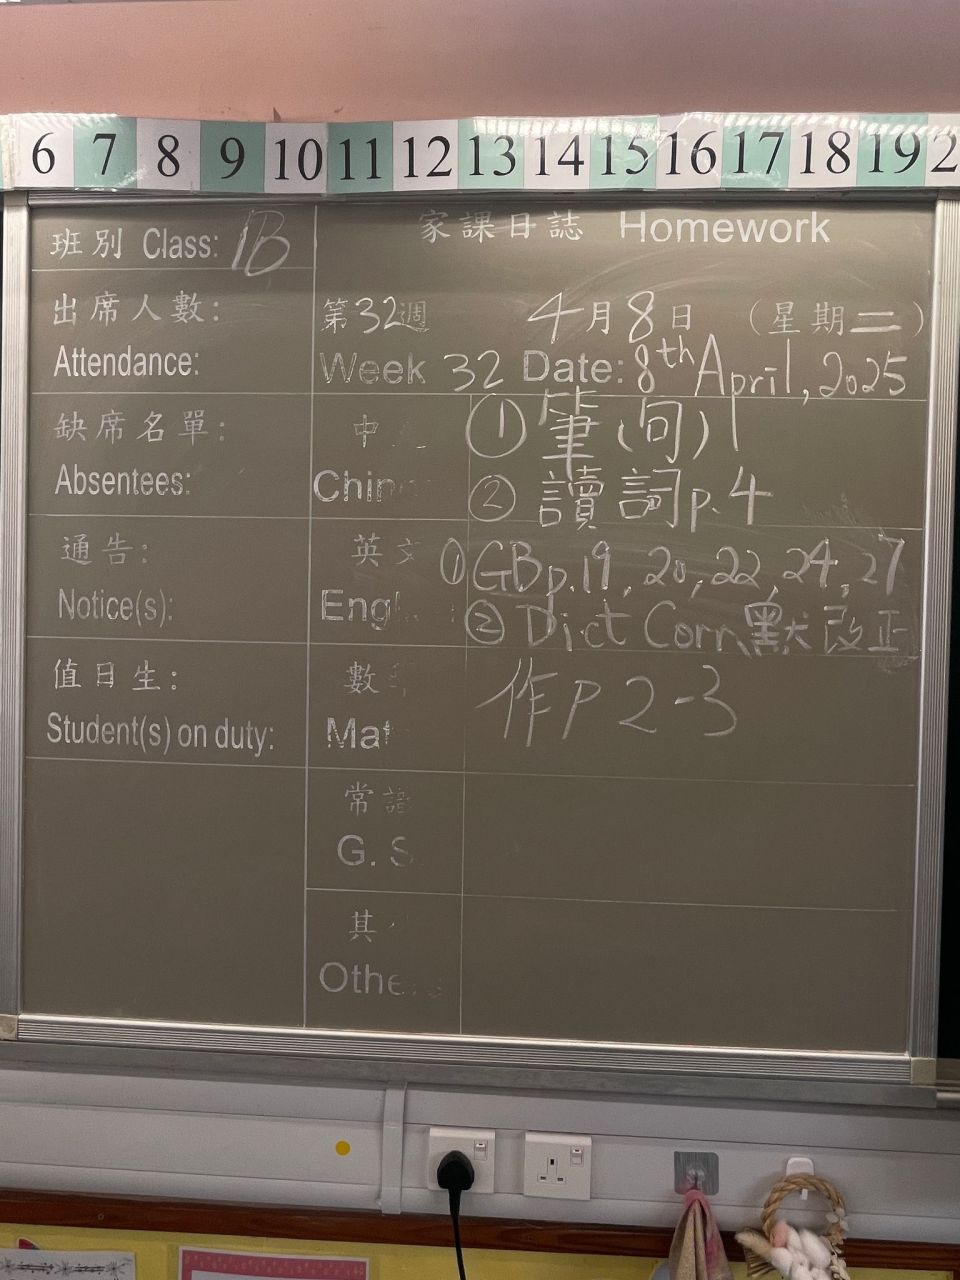 6 7 8 9 10 11 12 13 14 15 16 17 18 19 2
班別 Class: 1B
家課日誌 Homework
出席人數:
Attendance:
第32週 4月8日 (星期二)
Week 32 Date: 8th April, 2025
缺席名單:
Absentees:
中
Chin
① 筆(句)
② 讀詞p.4
通告:
Notice(s):
英文
Engl
① GB p.19, 20, 22, 24, 27
② Dict Corr 默改正
值日生:
Student(s) on duty:
數
Mat
作P 2-3
常識
G. S
其
Othe